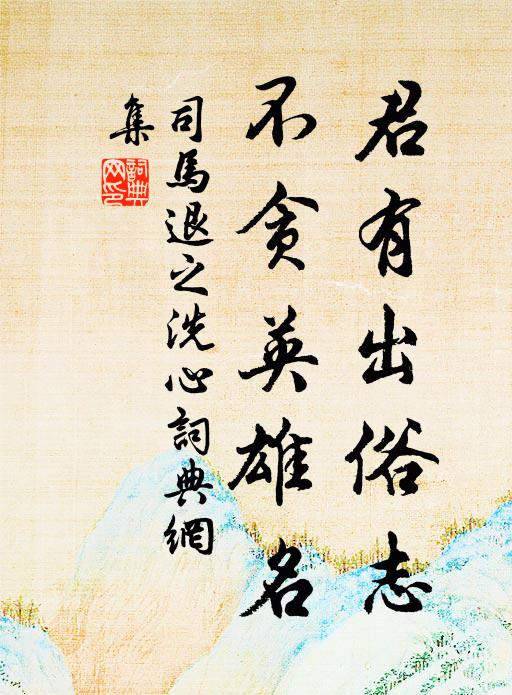 君有出俗志
不貪英雄名
司馬退之洗心詞典網
集
詞典
网印